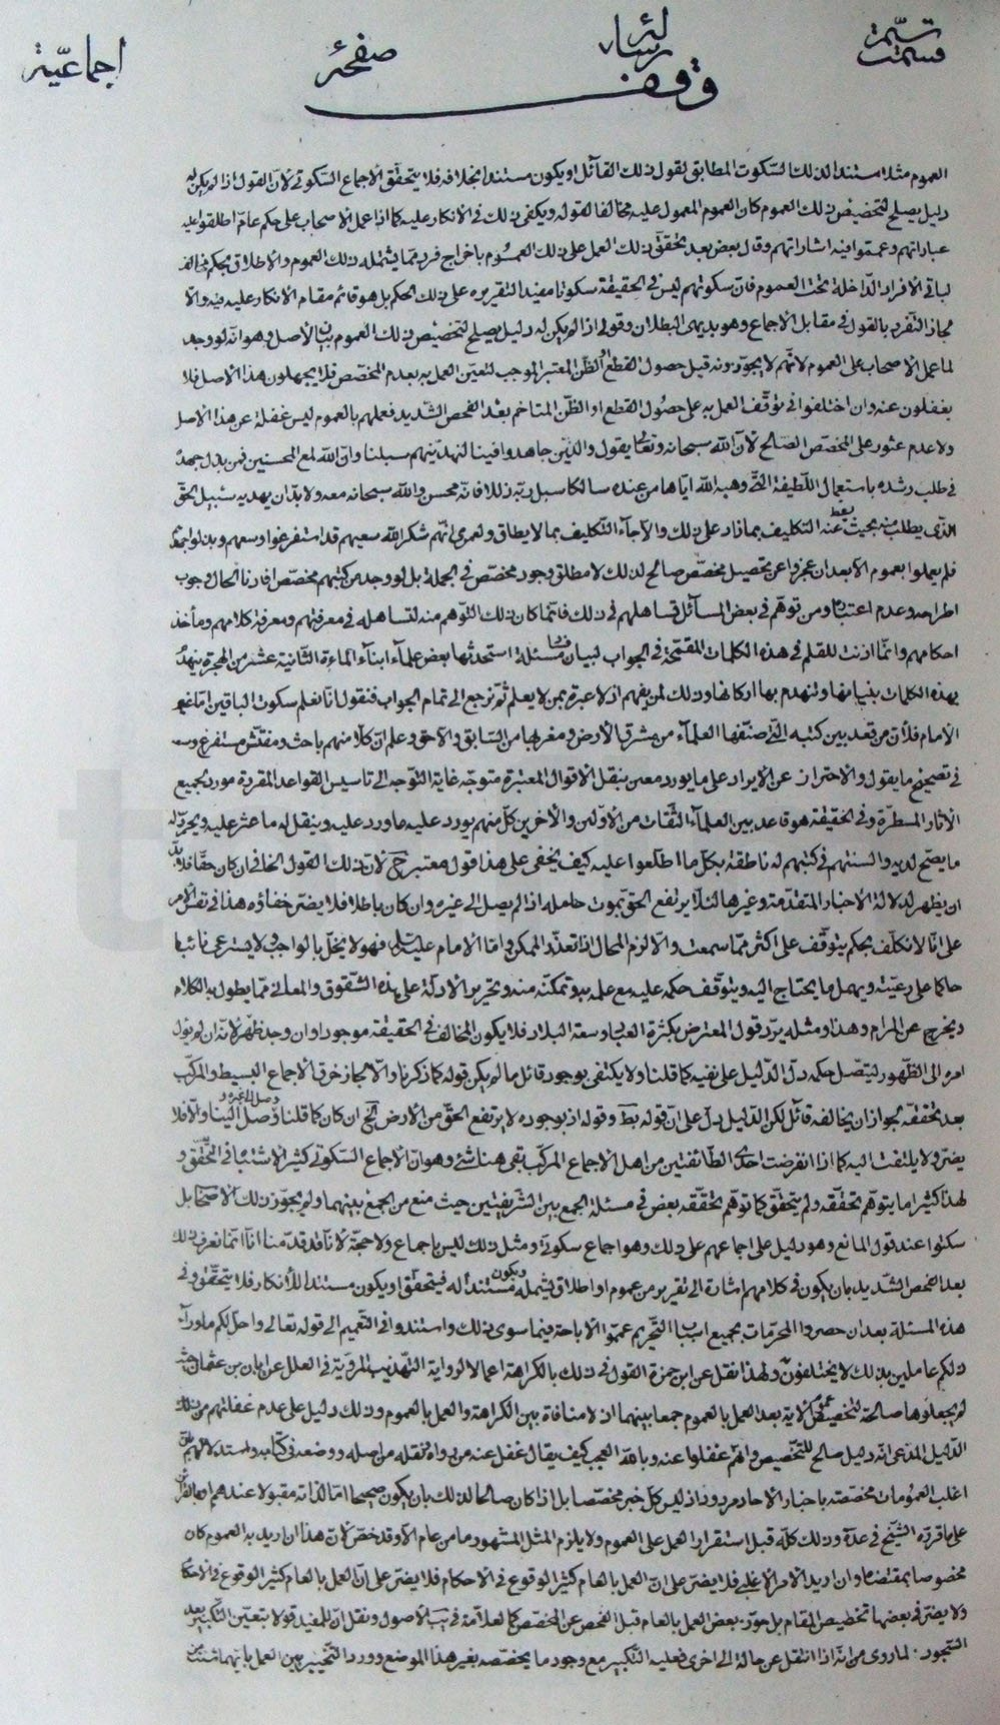 قسمت تتمّة رسالة صفحة اجماعيّة
وقف
العموم مثلا مستندا لذلك السّكوت المطابق لقول ذلك القآئل او يكون مستندا بخلافه فلا يتحقّق الأجماع السّكوتى لأنّ القول اذا لم يكن له
دليل يصلح لتخصيص ذلك العموم كان العموم المعمول عليه مخالفا لقوله ويكفى ذلك فى الانكار عليه كما اذا عمل الاصحاب على حكم عام اطلقوا عليه
عباراتهم وعمّموا فيه اشاراتهم وقال بعض بعد تحقّق ذلك العمل على ذلك العموم باخراج فرد ممّا يشمله ذلك العموم والاطلاق بحكم مخالف
لباقى الأفراد الدّاخلة تحت العموم فانّ سكوتهم ليس فى الحقيقة سكوتا مفيد التقريره على ذلك الحكم بل هو قائم مقام الانكار عليه فيه والّا
لجاز التّفرد بالقول فى مقابل الأجماع وهو بديهى البطلان وقولى اذا لم يكن له دليل يصلح لتخصيص ذلك العموم بيان الأصل وهو انّه لو وجد
لما عمل الأصحاب على العموم لأنّهم لا يجوّزونه قبل حصول القطع او الظّن المعتبر الموجب لتعيّن العمل به بعدم المخصّص فلا يجهلون هذا الأصل فلا
يغفلون عنه وان اختلفوا فى توقّف العمل به على حصول القطع او الظّن المتاخم بعد الفحص الشّديد فعملهم بالعموم ليس غفلة عن هذا الاصل
ولا عدم عثور على المخصّص الصّالح لأنّ اللّه سبحانه وتعالى يقول والذين جاهدوا فينا لنهدينّهم سبلنا وانّ اللّه لمع المحسنين فمن بذل جهده
فى طلب رشده باستعمال اللّطيفة الّتى وهبه اللّه ايّاها من عنده سالكا سبل ربّه ذللا فانّه محسن واللّه سبحانه معه ولا بدّ ان يهديه سبيل الحقّ
الّذى يطلب منه بحيث يسقط عنه التكليف بما زاد على ذلك والّا جآء التّكليف بما لا يطاق ولعمرى انّهم شكر اللّه سعيهم قد استفرغوا وسعهم وبذلوا جهدهم
فلم يعملوا بعموم الّا بعد ان عجزوا عن تحصيل مخصّص صالح لذلك لا مطلق وجود مخصّص فى الجملة بل لو وجد من كتبهم مخصّص افادنا الحال وجوب
اطراحه وعدم اعتباره ومن توهّم فى بعض المسآئل تساهلهم فى ذلك فانّما كان ذلك التّوهم منه لتساهله فى معرفتهم ومعرفة كلامهم ومأخذ
احكامهم وانّما اذنت للقلم فى هذه الكلمات المقتحمة فى الجواب لبيان فساد مسئلة استحدثها بعض علمآء ابنآء المآءة الثّانية عشر من الهجرة ينهدّ
بهذه الكلمات بنيانها وتنهدم بها اركانها وذلك لمن يفهم اذ لا عبرة بمن لا يعلم ثم نرجع الى تمام الجواب فنقول انّا نعلم سكوت الباقين امّا غير
الأمام فلأنّ من قعد بين كتبه الّتى صنّفها العلمآء من مشرق الأرض ومغربها من السّابق والآحق وعلم انّ كلّا منهم باحث ومفتّش مستفرغ وسعه
فى تصحيح ما يقول والاحتراز عن الايراد على ما يورد معن بنقل الاقوال المعتبرة متوجّه غاية التّوجه الى تاسيس القواعد المقرّرة مورد بجميع
الأثار المسطّرة وفى الحقيقة هو قاعد بين العلمآء الثّقات من الأوّلين والأخرين كلّ منهم يورد عليه ما ورد عليه وينقل له ما عثر عليه ويحرّر له
ما يصحّ لديه والسنتهم فى كتبهم له ناطقة بكلّ ما اطّلعوا عليه كيف يخفى على هذا قول معتبر ح لأنّ ذلك القول الخافى ان كان حقّا فلا بدّ
ان يظهر له لدلالة الأخبار المتقدّمة وغيرها لئلّا يرتفع الحق بموت حامله اذا لم يصل الى غيره وان كان باطلا فلا يضرّ خفاؤه هذا فى نفس الامر
على انّا لا نكلّف بحكم يتوقّف على اكثر ممّا سمعت والّا لزم المحال اذا تعذّر الممكن وامّا الامام عليه السلام فهو لا يخلّ بالواجب ولا يسترعى غائبا
حاكما على رعيّته ويهمل ما يحتاج اليه ويتوقّف حكمه عليه مع علمه به وتمكّنه منه وتحرير الأدلّة على هذه الشّقوق والمعانى ممّا يطول به الكلام
ويخرج عن المرام وهذا ومثله يردّ قول المعترض بكثرة العلماء وسعة البلاد فلا يكون المخالف فى الحقيقة موجودا وان وجد ظهر لأنّه ان لم يؤل
امره الى الظّهور ليتّصل حكمه دلّ الدّليل على نفيه كما قلنا ولا يكتفى بوجود قائل ما لم يكن قوله كما ذكرنا والّا لجاز خرق الأجماع البسيط والمركّب
بعد تحقّقه لجواز ان يخالفه قائل لكن الدّليل دلّ على انّ قوله بط وقوله اذ بوجوده لا يرتفع الحقّ من الأرض الخ ان كان كما قلنا وصل الينا والّا فلا
يضرّ ولا يلتفت اليه كما اذا انقرضت احدى الطّائفتين من اهل الاجماع المركّب بقى هنا شئ وهو انّ الاجماع السّكوتى كثير الاشتباه فى التّحقّق و
لهذا كثيرا ما يتوهّم تحقّقه ولم يتحقّق كما توهّم تحقّقه بعض فى مسئلة الجمع بين الشّريفتين حيث منع من الجمع بينهما ولم يجوّز ذلك الاصحاب بل
سكتوا عند قول المانع وهو دليل على اجماعهم على ذلك وهو اجماع سكوتى ومثل ذلك ليس باجماع ولا حجّة لأنّا قد قدّمنا انّا انّما نعرف ذلك
بعد الفحص الشّديد بان يكون فى كلامهم اشارة الى تقرير من عموم او اطلاق يشمله ويكون مستندا له فيتحقّق او يكون مستندا للأنكار فلا يتحقّق وفى
هذه المسئلة بعد ان حصروا المحرّمات بجميع اسباب التّحريم عمّموا الاباحة فيما سوى ذلك واستندوا فى التّعميم الى قوله تعالى واحلّ لكم ما ورآء
ذلكم عاملين بذلك لا يختلفون ولهذا نقل عن ابن حمزة القول فى ذلك بالكراهة اعمالا لرواية التّهذيب المرويّة فى العلل عن ابان بن عثمان حيث
لم يجعلوها صالحة لتخصيص عموم الآية بعد العمل بالعموم جمعا بينهما اذ لا منافاة بين الكراهة والعمل بالعموم وذلك دليل على عدم غفلتهم من ذلك
الدّليل المدّعى انّه دليل صالح للتّخصيص وانّهم غفلوا عنه وباللّه العجب كيف يقال غفل عنه من رواه ونقله من اصله ووضعه فى كتابه واستدلالهم بانّ
اغلب العمومات مخصّصة باخبار الاحاد مردود اذ ليس كلّ خبر مخصّصا بل اذا كان صالحا لذلك بان يكون صحيحا امّا لذاته مقبولا عندهم او بالقرائن
على ما قرّره الشّيخ فى عدّة وذلك كلّه قبل استقرار العمل على العموم ولا يلزم المثل المشهور ما من عام الّا وقد خصّ لأنّ هذا ان اريد به العموم كان
مخصوصا بمقتضاه وان اريد الامر الاغلبى فلا يضرّ على انّ العمل بالعام كثير الوقوع فى الاحكام فلا يضرّ على انّ العمل بالعام كثير الوقوع فى الأحكام
ولا يضرّ فى بعضها تخصيص المقام بل جوّز بعض العمل بالعام قبل الفحص عن المخصّص كالعلّامة فى يب الاصول ونقل انّ للمفيد قولا بتعيّن التّكبير بعد
السّجود لما روى من انّه اذا انتقل عن حالة الى اخرى فعليه التّكبير مع وجود ما يخصّصه بغير هذا الموضع وورد التّخيير بين العمل بايّهما شئت